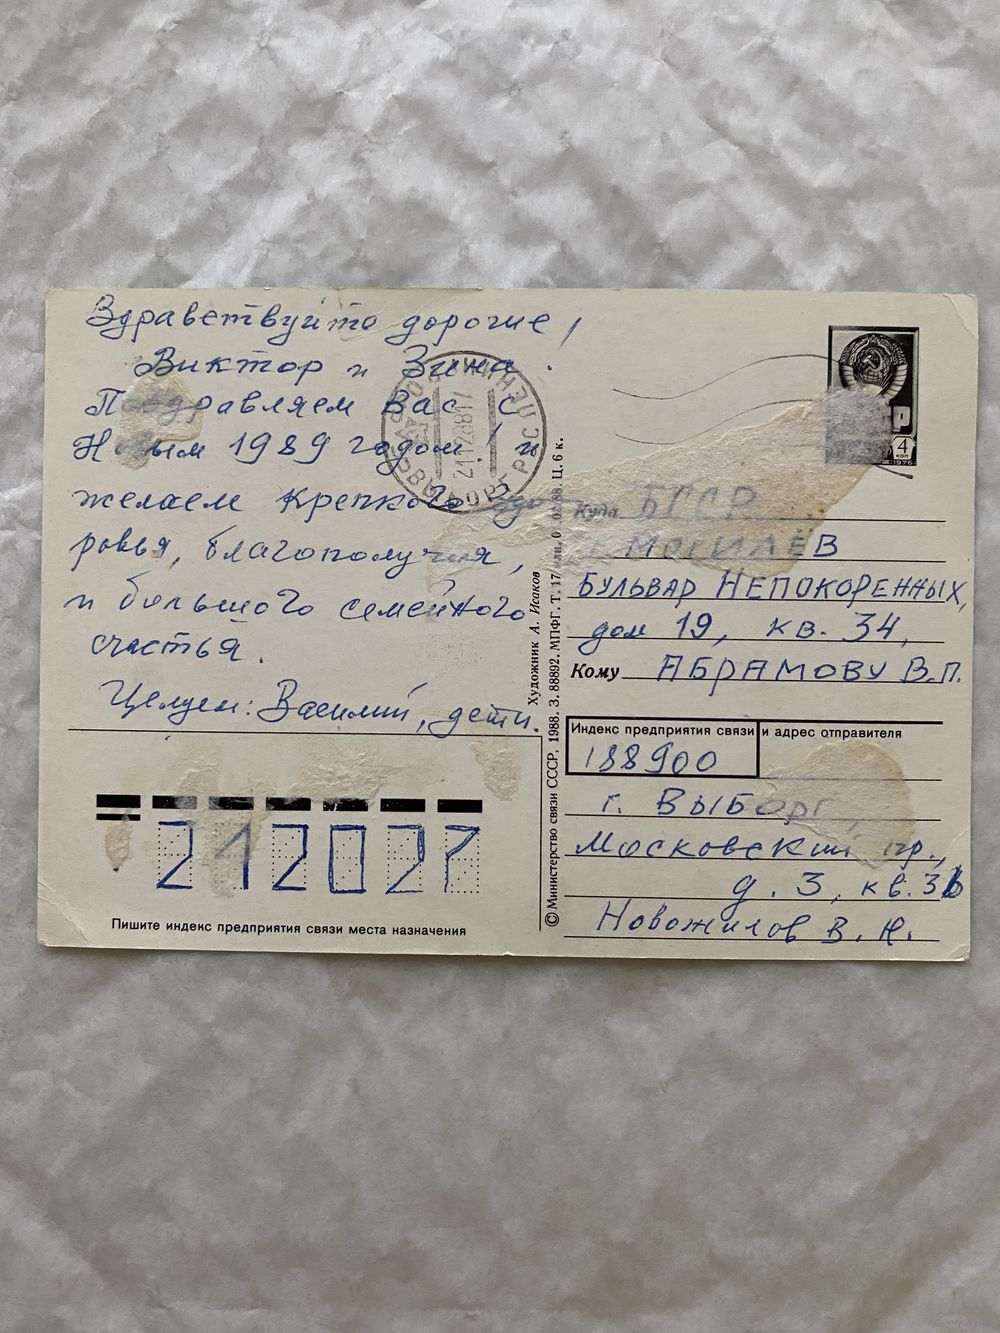 Здравствуйте дорогие,
Виктор и Зина.
Поздравляем Вас с
Новым 1989 годом! и
желаем крепкого здо
ровья, благополучия,
и большого семейного
счастья.
Целуем: Василий, дети.
4
коп
1976
Куда БССР
г. МОГИЛЁВ
БУЛЬВАР НЕПОКОРЕННЫХ,
дом 19, кв. 34,
Кому АБРАМОВУ В.П.
Индекс предприятия связи и адрес отправителя
188900
г. ВЫБОРГ,
Московский пр.,
д. 3, кв. 36
Новожилов В. Н.
212027
Пишите индекс предприятия связи места назначения
Художник А. Исаков
© Министерство связи СССР, 1988. З. 88892. МПФГ. Т. 17 02.88. Ц. 6 к.